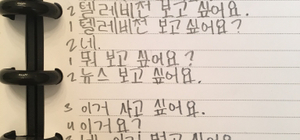 2 텔레비전 보고 싶어요.
1 텔레비전 보고 싶어요?
2 네.
1 뭐 보고 싶어요?
2 뉴스 보고 싶어요.
3 이거 사고 싶어요.
4 이거요?